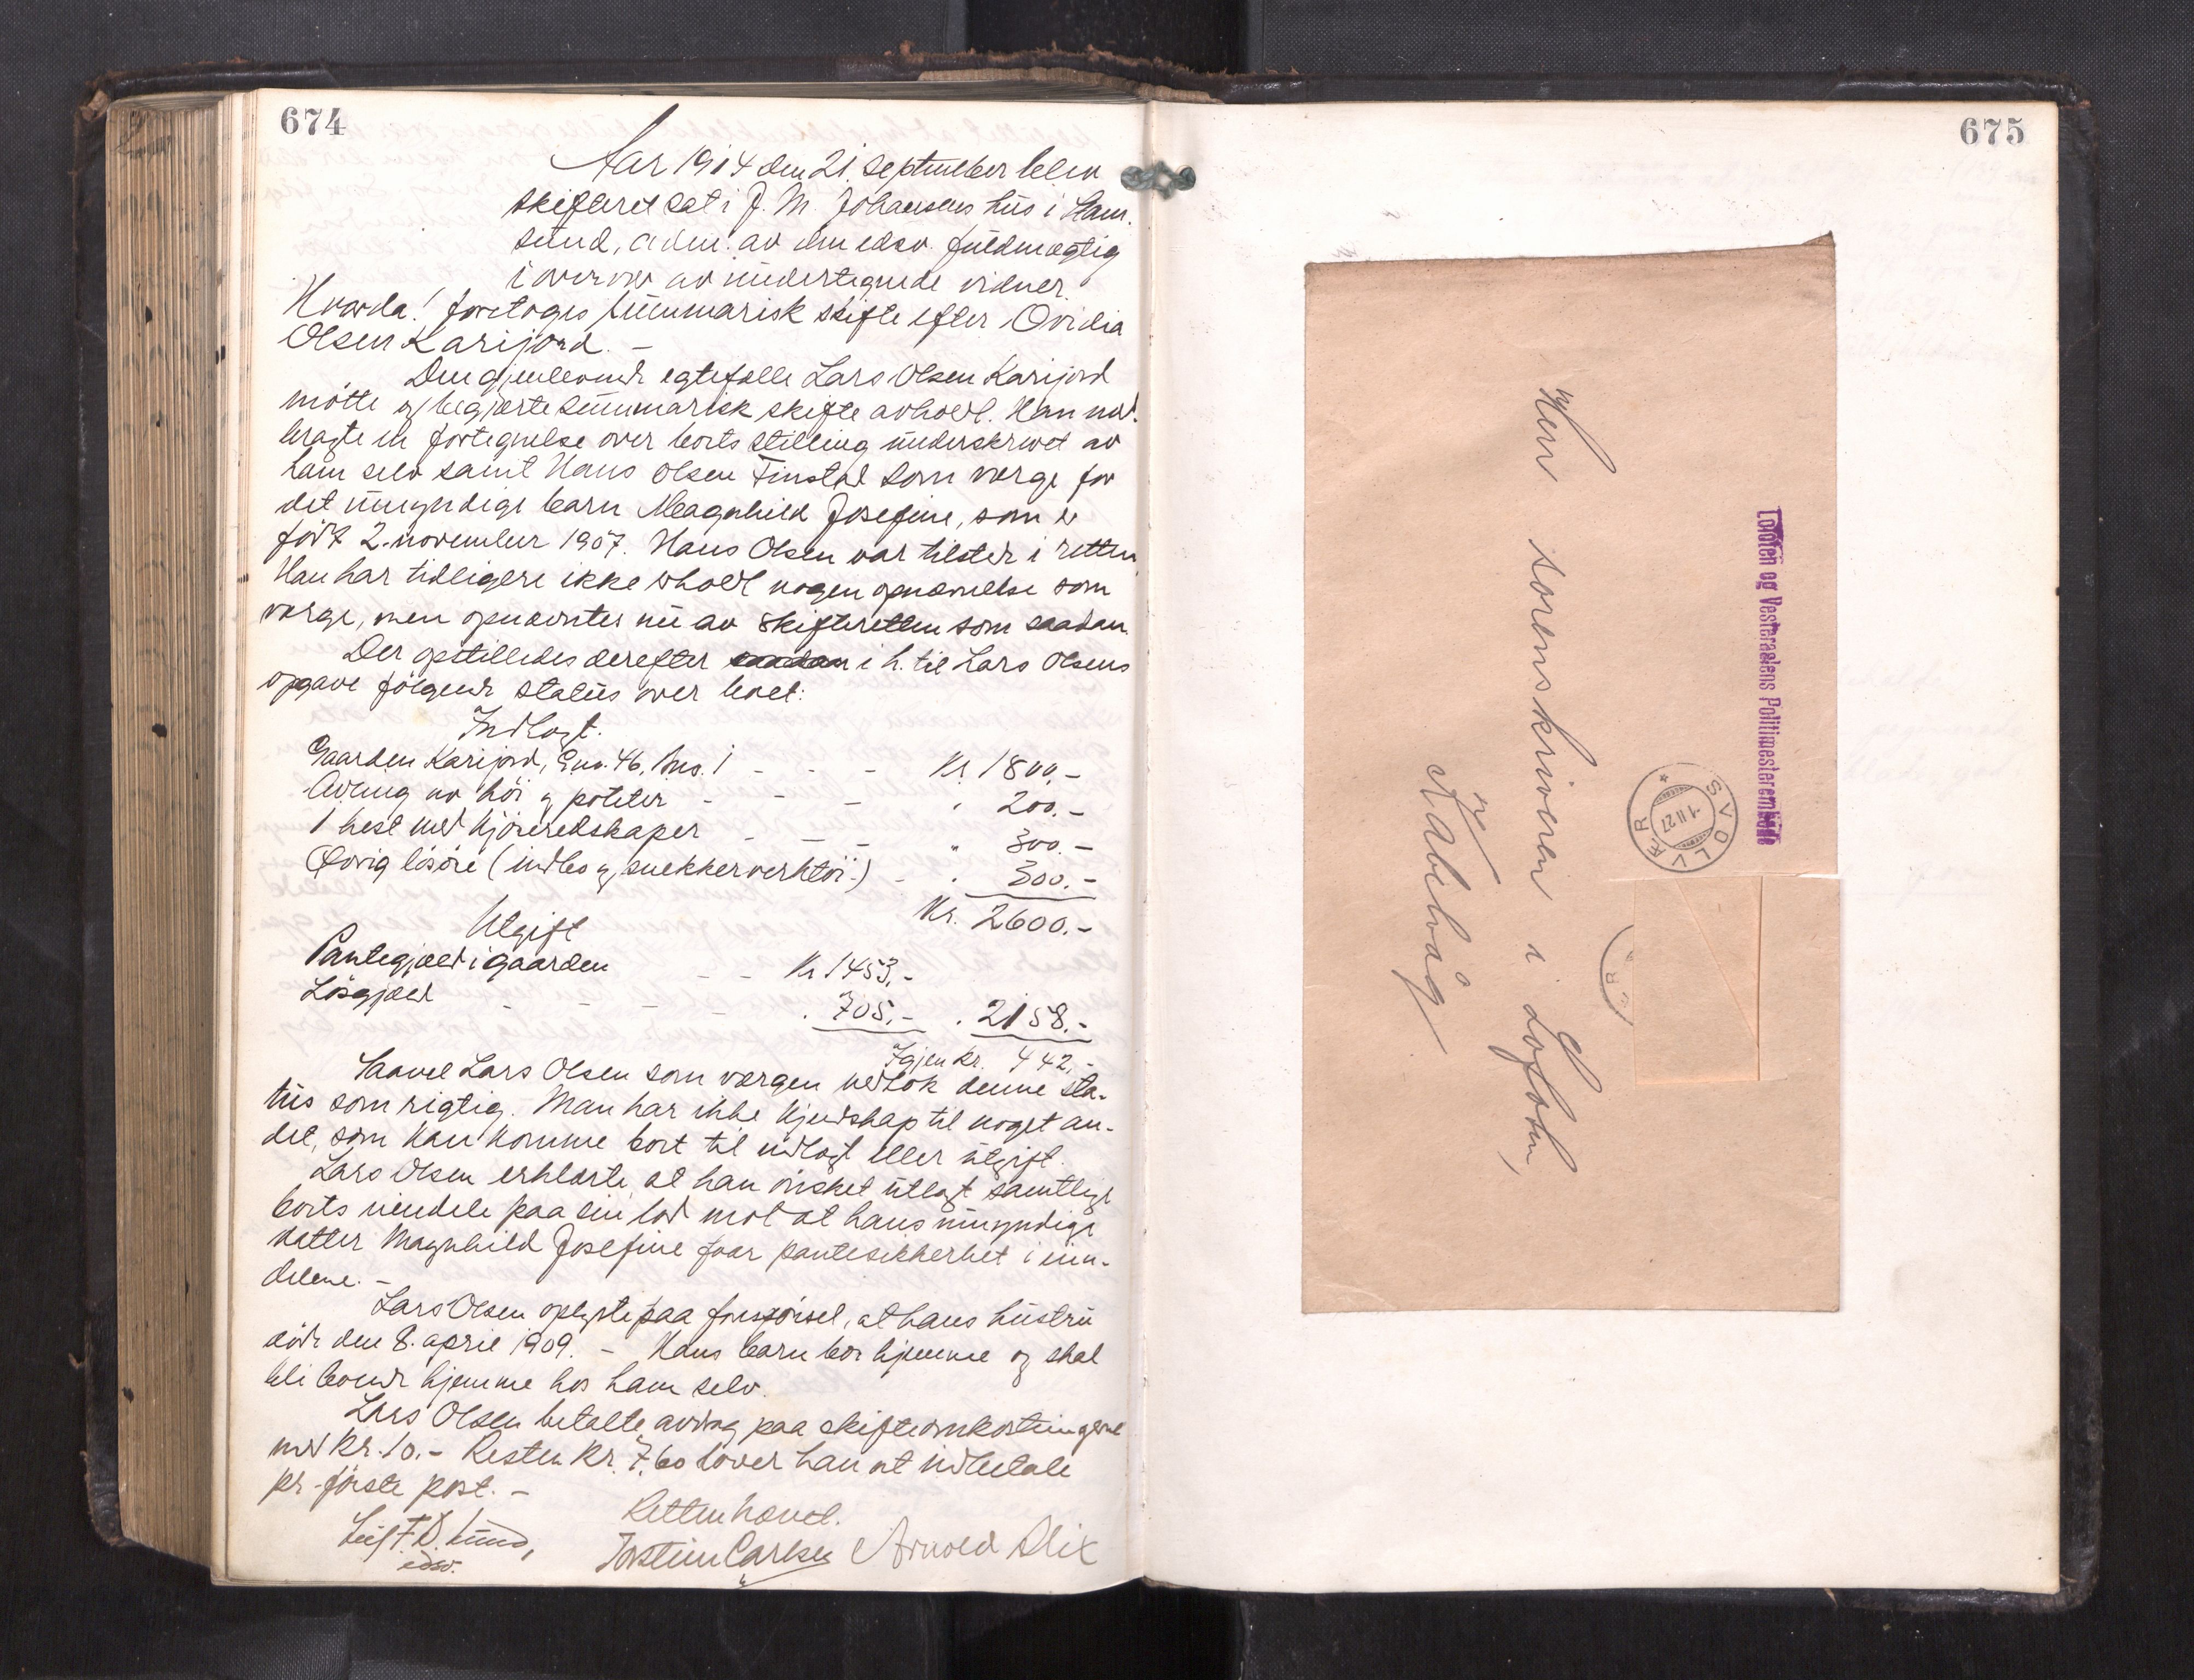 674
Aar 1914 den 21. september blev
skifteret sat i J. M. Johansens hus i Ham-
sund, adm. av den edsv. fuldmægtig
i overvær av undertegnede vidner.
Hvorda! foretoges summarisk skifte efter Ovidia
Olsen Karijord. -
Den gjenlevende egtefælle Lars Olsen Karijord
møtte og begjærte summarisk skifte avholdt. Han med-
bragte en fortegnelse over boets stilling underskrevet av
ham selv samt Hans Olsen Finstad som verge for
det umyndige barn Magnhild Josefine, som er
født 2. november 1907. Hans Olsen var tilstede i retten.
Han har tidligere ikke erholdt nogen opnævnelse som
verge, men opnævntes nu av skifteretten som saadan.
Der opstilledes derefter saadan i h. til Lars Olsens
opgave følgende status over boet:
Indtægt.
Gaarden Karijord, Gno. 46, Bno. 1 - - - Kr. 1800.-
Avling av høi og poteter - - - " 200.-
1 hest med kjøreredskaper - - - " 300.-
Øvrig løsøre (indbo og snekkerverktøi) - " 300.-
Kr. 2600.-
Utgift
Pantegjæld i gaarden - - Kr 1453.-
Løsgjæld - - - - - " 705.- " 2158.-
Igjen kr. 442.-
Saavel Lars Olsen som vergen vedtok denne sta-
tus som rigtig. Man har ikke kjendskap til noget an-
det, som kan komme boet til indtægt eller utgift.
Lars Olsen erklærte, at han ønsket utlagt samtlige
boets eiendele paa sin lod mot at hans umyndige
datter Magnhild Josefine faar pantesikkerhet i eien-
delene. -
Lars Olsen oplyste paa forespørsel, at hans hustru
døde den 8. april 1909. - Hans barn bor hjemme og skal
bli boende hjemme hos ham selv.
Lars Olsen betalte avdrag paa skifteomkostningerne
med kr. 10.- Resten kr. 7,60 lover han at indbetale
pr. første post. -
Retten hævet.
Leif F. D. Lund,
edsv.
Torstein Carlsen Arnold Slix
675
Lofoten og Vesteraalens Politimesterembede
SVOLVÆR
1 II 27
Herr sorenskriveren i Lofoten,
Kabelvåg